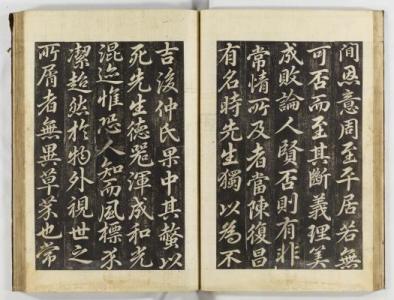 間恩意周至平居若無
可否而至其斷義理美
成敗論人賢否則有非
常情所及者當陳復昌
有名時先生獨以為不
吉後仲氏果中其螫以
死先生德器渾成和光
混迹惟恐人知而風標不
潔超然於物外視世之
所屑者無異草芥也常